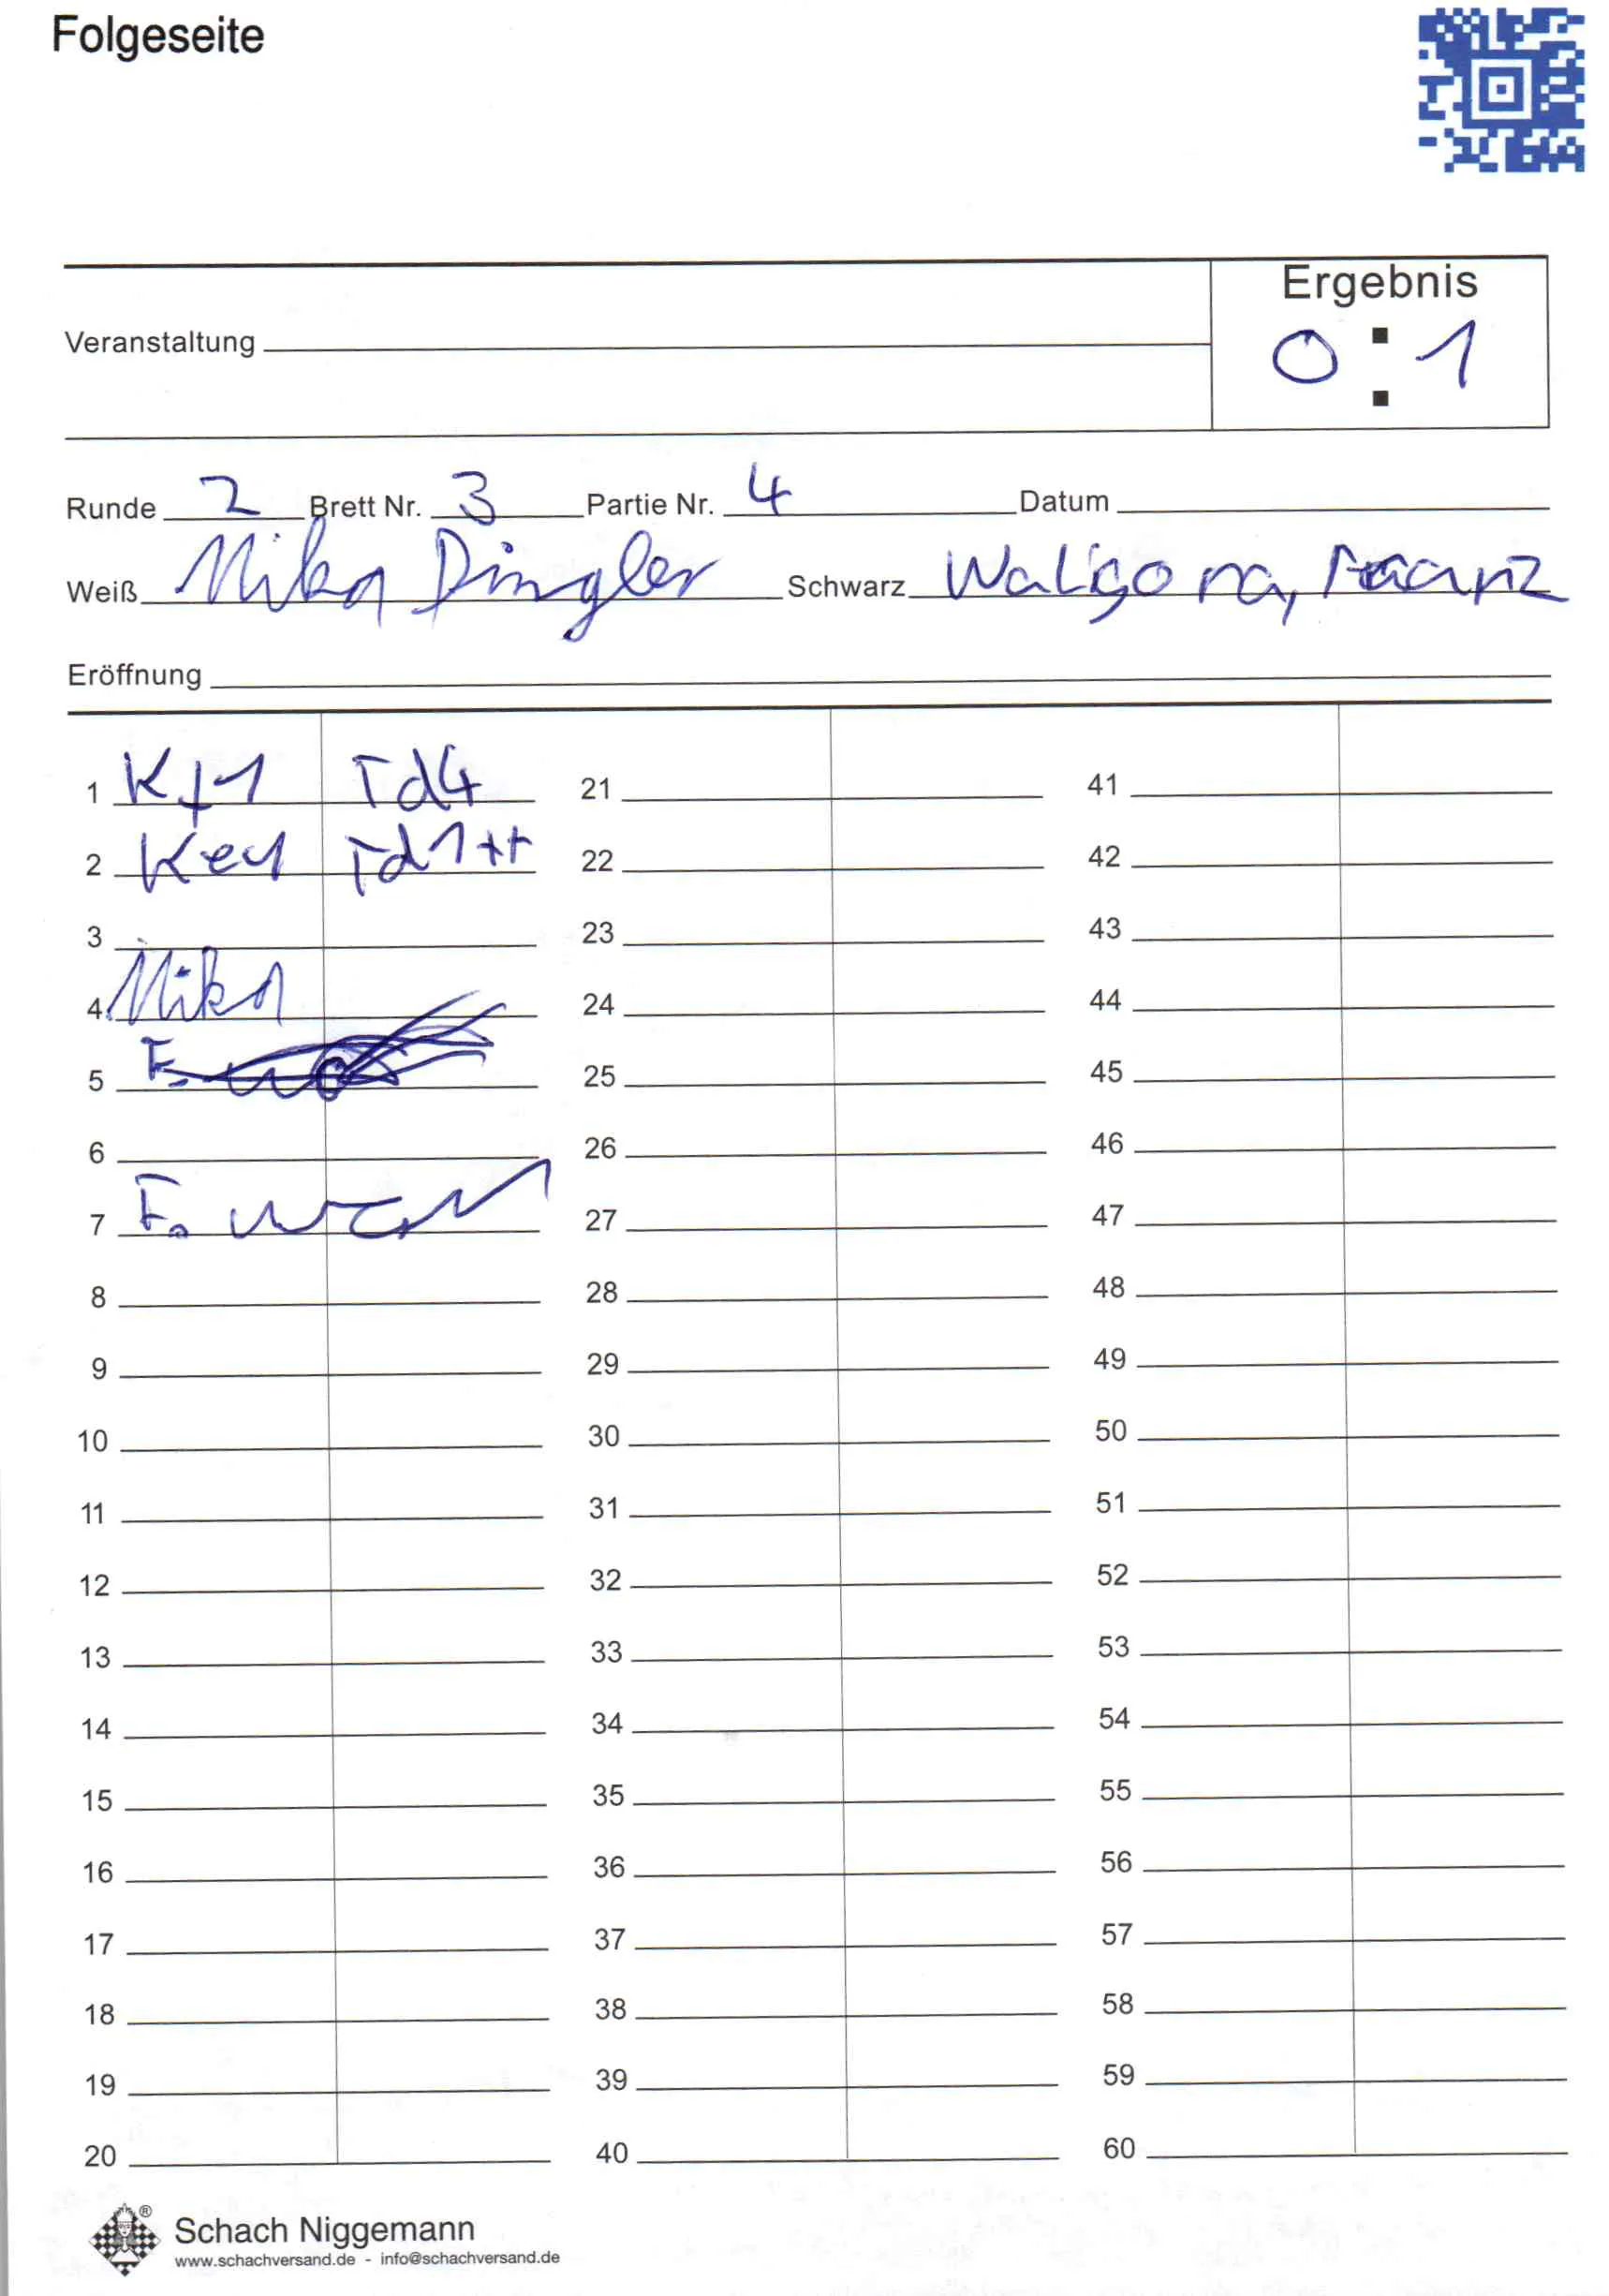 Folgeseite
Ergebnis
Veranstaltung
0 : 1
Runde 2 Brett Nr. 3 Partie Nr. 4 Datum
Weiß Mika Dingler Schwarz Waligora, Franz
Eröffnung
1 Kf1 Td4 21 41
2 Ke1 Td1++ 22 42
3 23 43
4 Mika 24 44
5 F. 25 45
6 26 46
7 F. 27 47
8 28 48
9 29 49
10 30 50
11 31 51
12 32 52
13 33 53
14 34 54
15 35 55
16 36 56
17 37 57
18 38 58
19 39 59
20 40 60
® Schach Niggemann
www.schachversand.de - info@schachversand.de